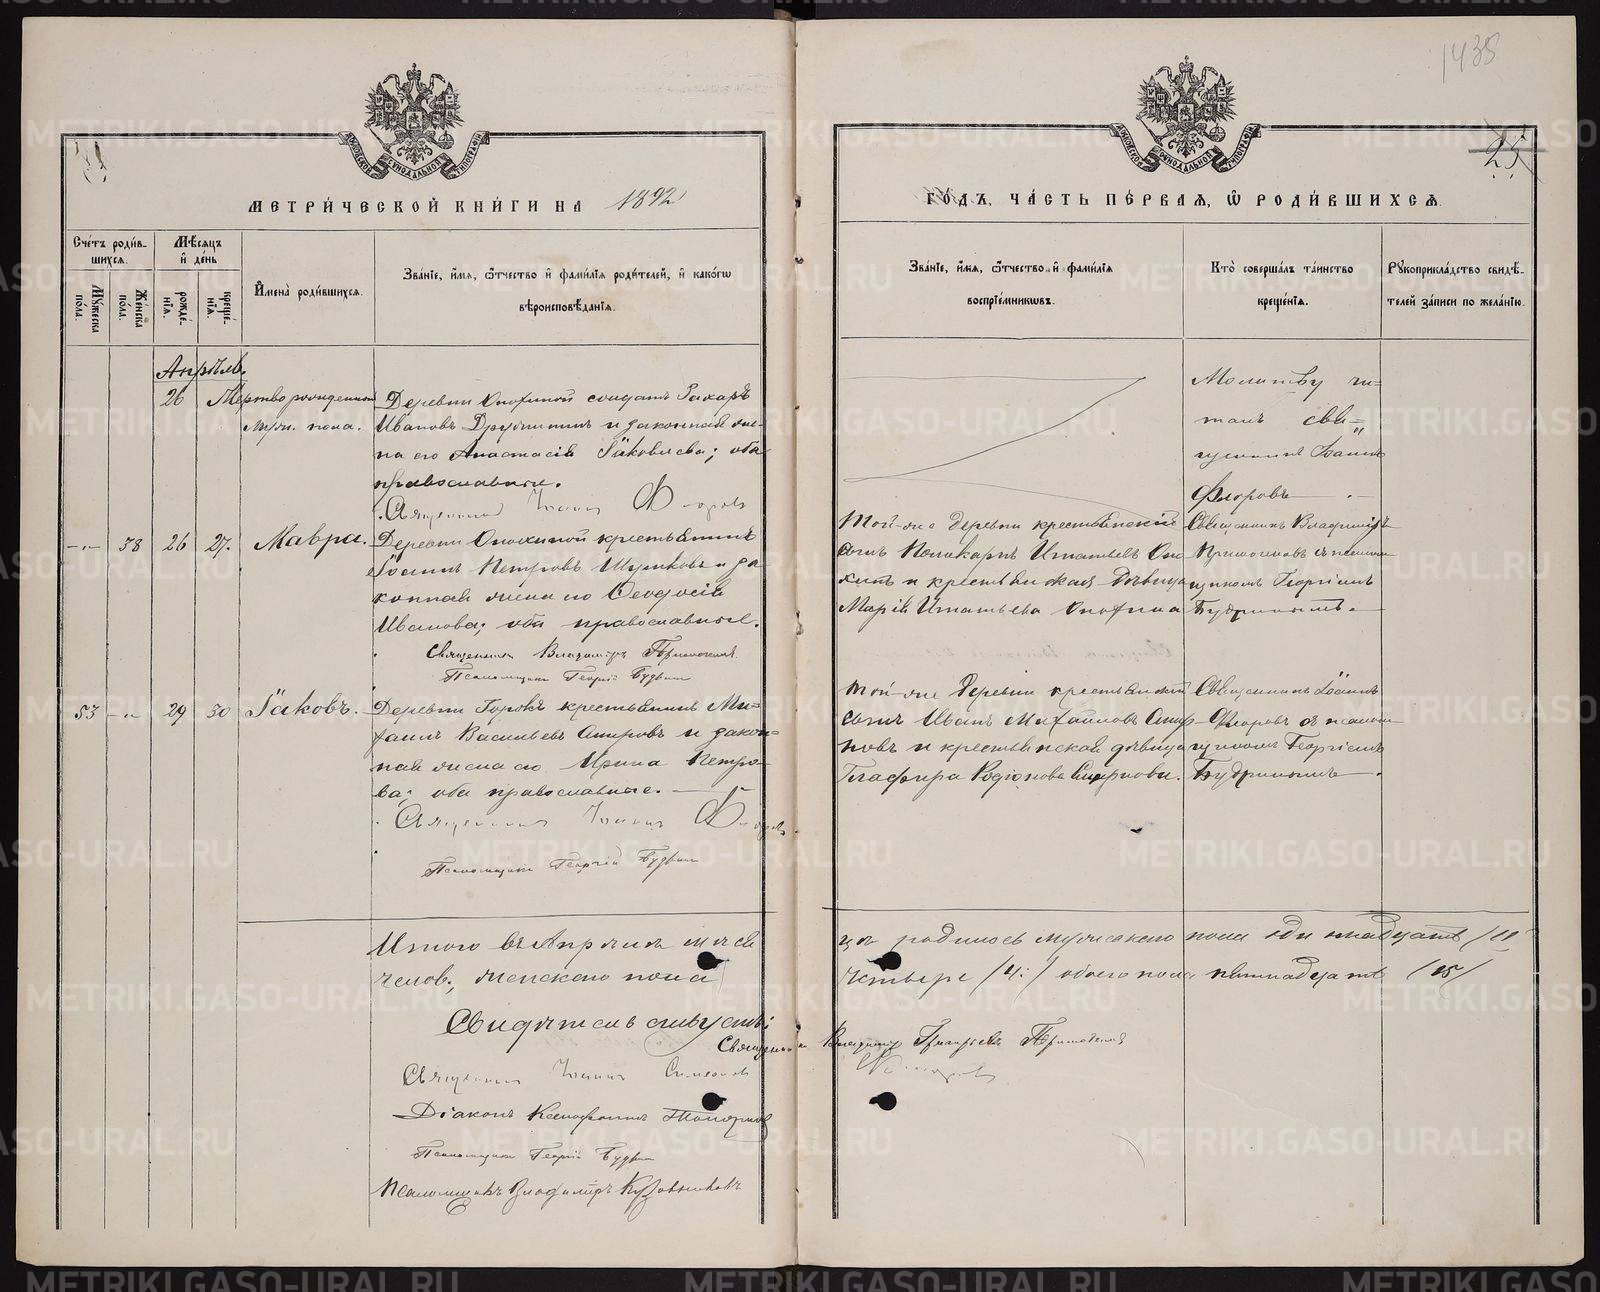 1435
25
МЕТРИЧЕСКОЙ КНИГИ НА 1892
ГОДЪ, ЧАСТЬ ПЕРВАЯ, Ѡ РОДИВШИХСЯ
Счетъ родив-
шихся.
Мѣсяцъ
и день
Мужеска
пола.
Женска
пола.
рожде-
нія.
креще-
нія.
Имена родившихся.
Званіе, имя, ѿчество и фамилія родителей, и какогѡ
вѣроисповѣданія.
Званіе, имя, ѿчество и фамилія
воспріемниковъ.
Кто совершалъ таинство
крещенія.
Рукоприкладство свидѣ-
телей записи по желанію.
Апрѣль.
26 Мертворожденный
муж. пола.
Деревни Опохиной солдатъ Захаръ
Ивановъ и законная же-
на его Анастасія Іаковлева; оба
православные.
Священникъ Іоаннъ Флоровъ
Молитву чи-
талъ свя-
щенникъ Іоаннъ
Флоровъ
38 26 27. Мавра.
Деревни Опохиной крестьянинъ
Іоаннъ Петровъ и за-
конная жена его Ѳеодосія
Иванова; оба православные.
Священникъ Владиміръ
Псаломщикъ Георгій
Той-же деревни крестьянскій
сынъ Поликарпъ Игнатьевъ Опо-
хинъ и крестьянская дѣвица
Марія Игнатьева Опохина
Священникъ Владиміръ
съ псалом-
щикомъ Георгіемъ
53 29 30 Іаковъ.
Деревни крестьянинъ Ми-
хаилъ Васильевъ и закон-
ная жена его Ирина Петро-
ва; оба православные.
Священникъ Іоаннъ Флоровъ
Псаломщикъ Георгій
Той-же деревни крестьянскій
сынъ Иванъ Михайловъ Смир-
новъ и крестьянская дѣвица
Глафира Родіонова Смирнова.
Священникъ Іоаннъ
Флоровъ съ псалом-
щикомъ Георгіемъ
Итого въ Апрѣлѣ мѣся-
цѣ родилось мужскаго пола одиннадцать (11
человѣкъ, женскаго пола
четыре (4) обоего пола пятнадцать (15)
Свидѣтельствуютъ:
Священникъ Владиміръ Григорьевъ
Священникъ Іоаннъ Симеоновъ
Флоровъ
Діаконъ Ксенофонтъ
Псаломщикъ Георгій
Псаломщикъ Владиміръ
METRIKI.GASO-URAL.RU